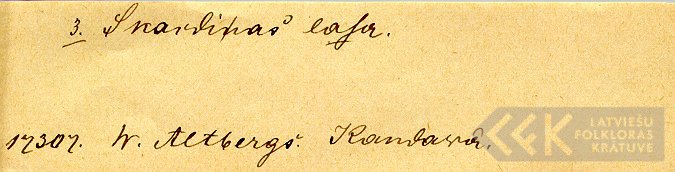 3. Skardiņas laſa.
17307. W. Altbergs. Kandawā.
LFK LATVIEŠU
FOLKLORAS
KRĀTUVE